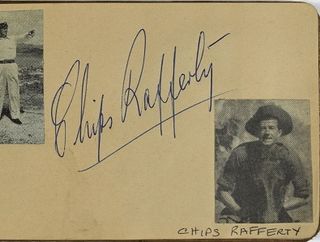 Chips Rafferty
CHIPS RAFFERTY